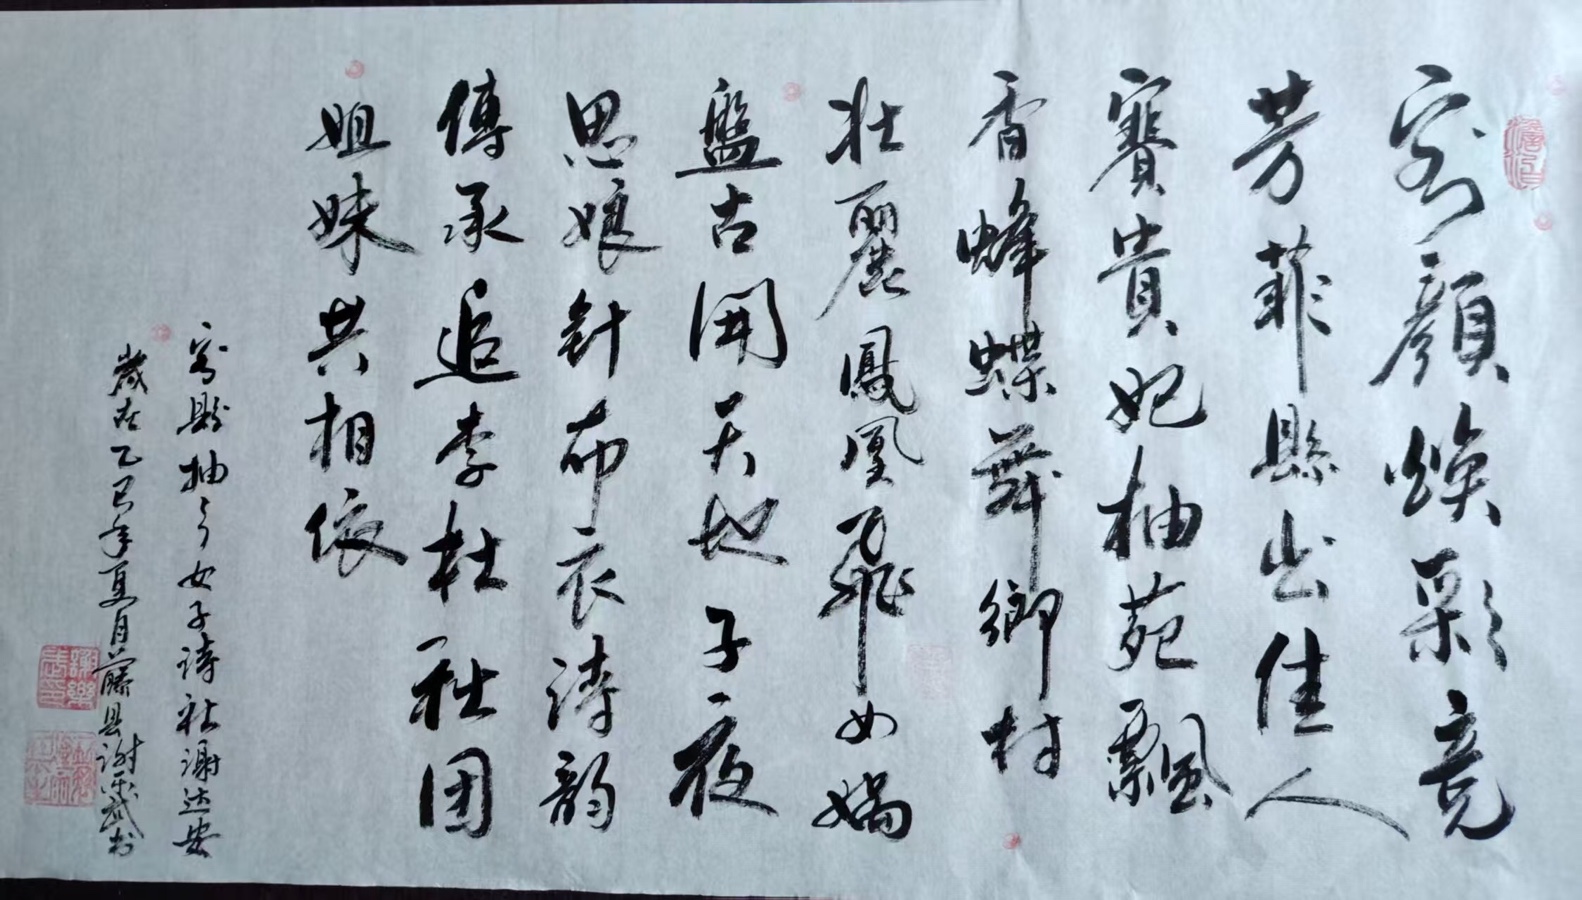 容顔焕彩竞
芳菲縣出佳人
賽貴妃柚苑飄
香蜂蝶舞鄉村
壮麗鳳凰飛女媧
盤古開天地子夜
思娘針布衣诗韵
傳承追李杜社团
姐妹共相依
容縣柚乡女子诗社谢达安
歲在乙巳年夏月藤县谢乐武书